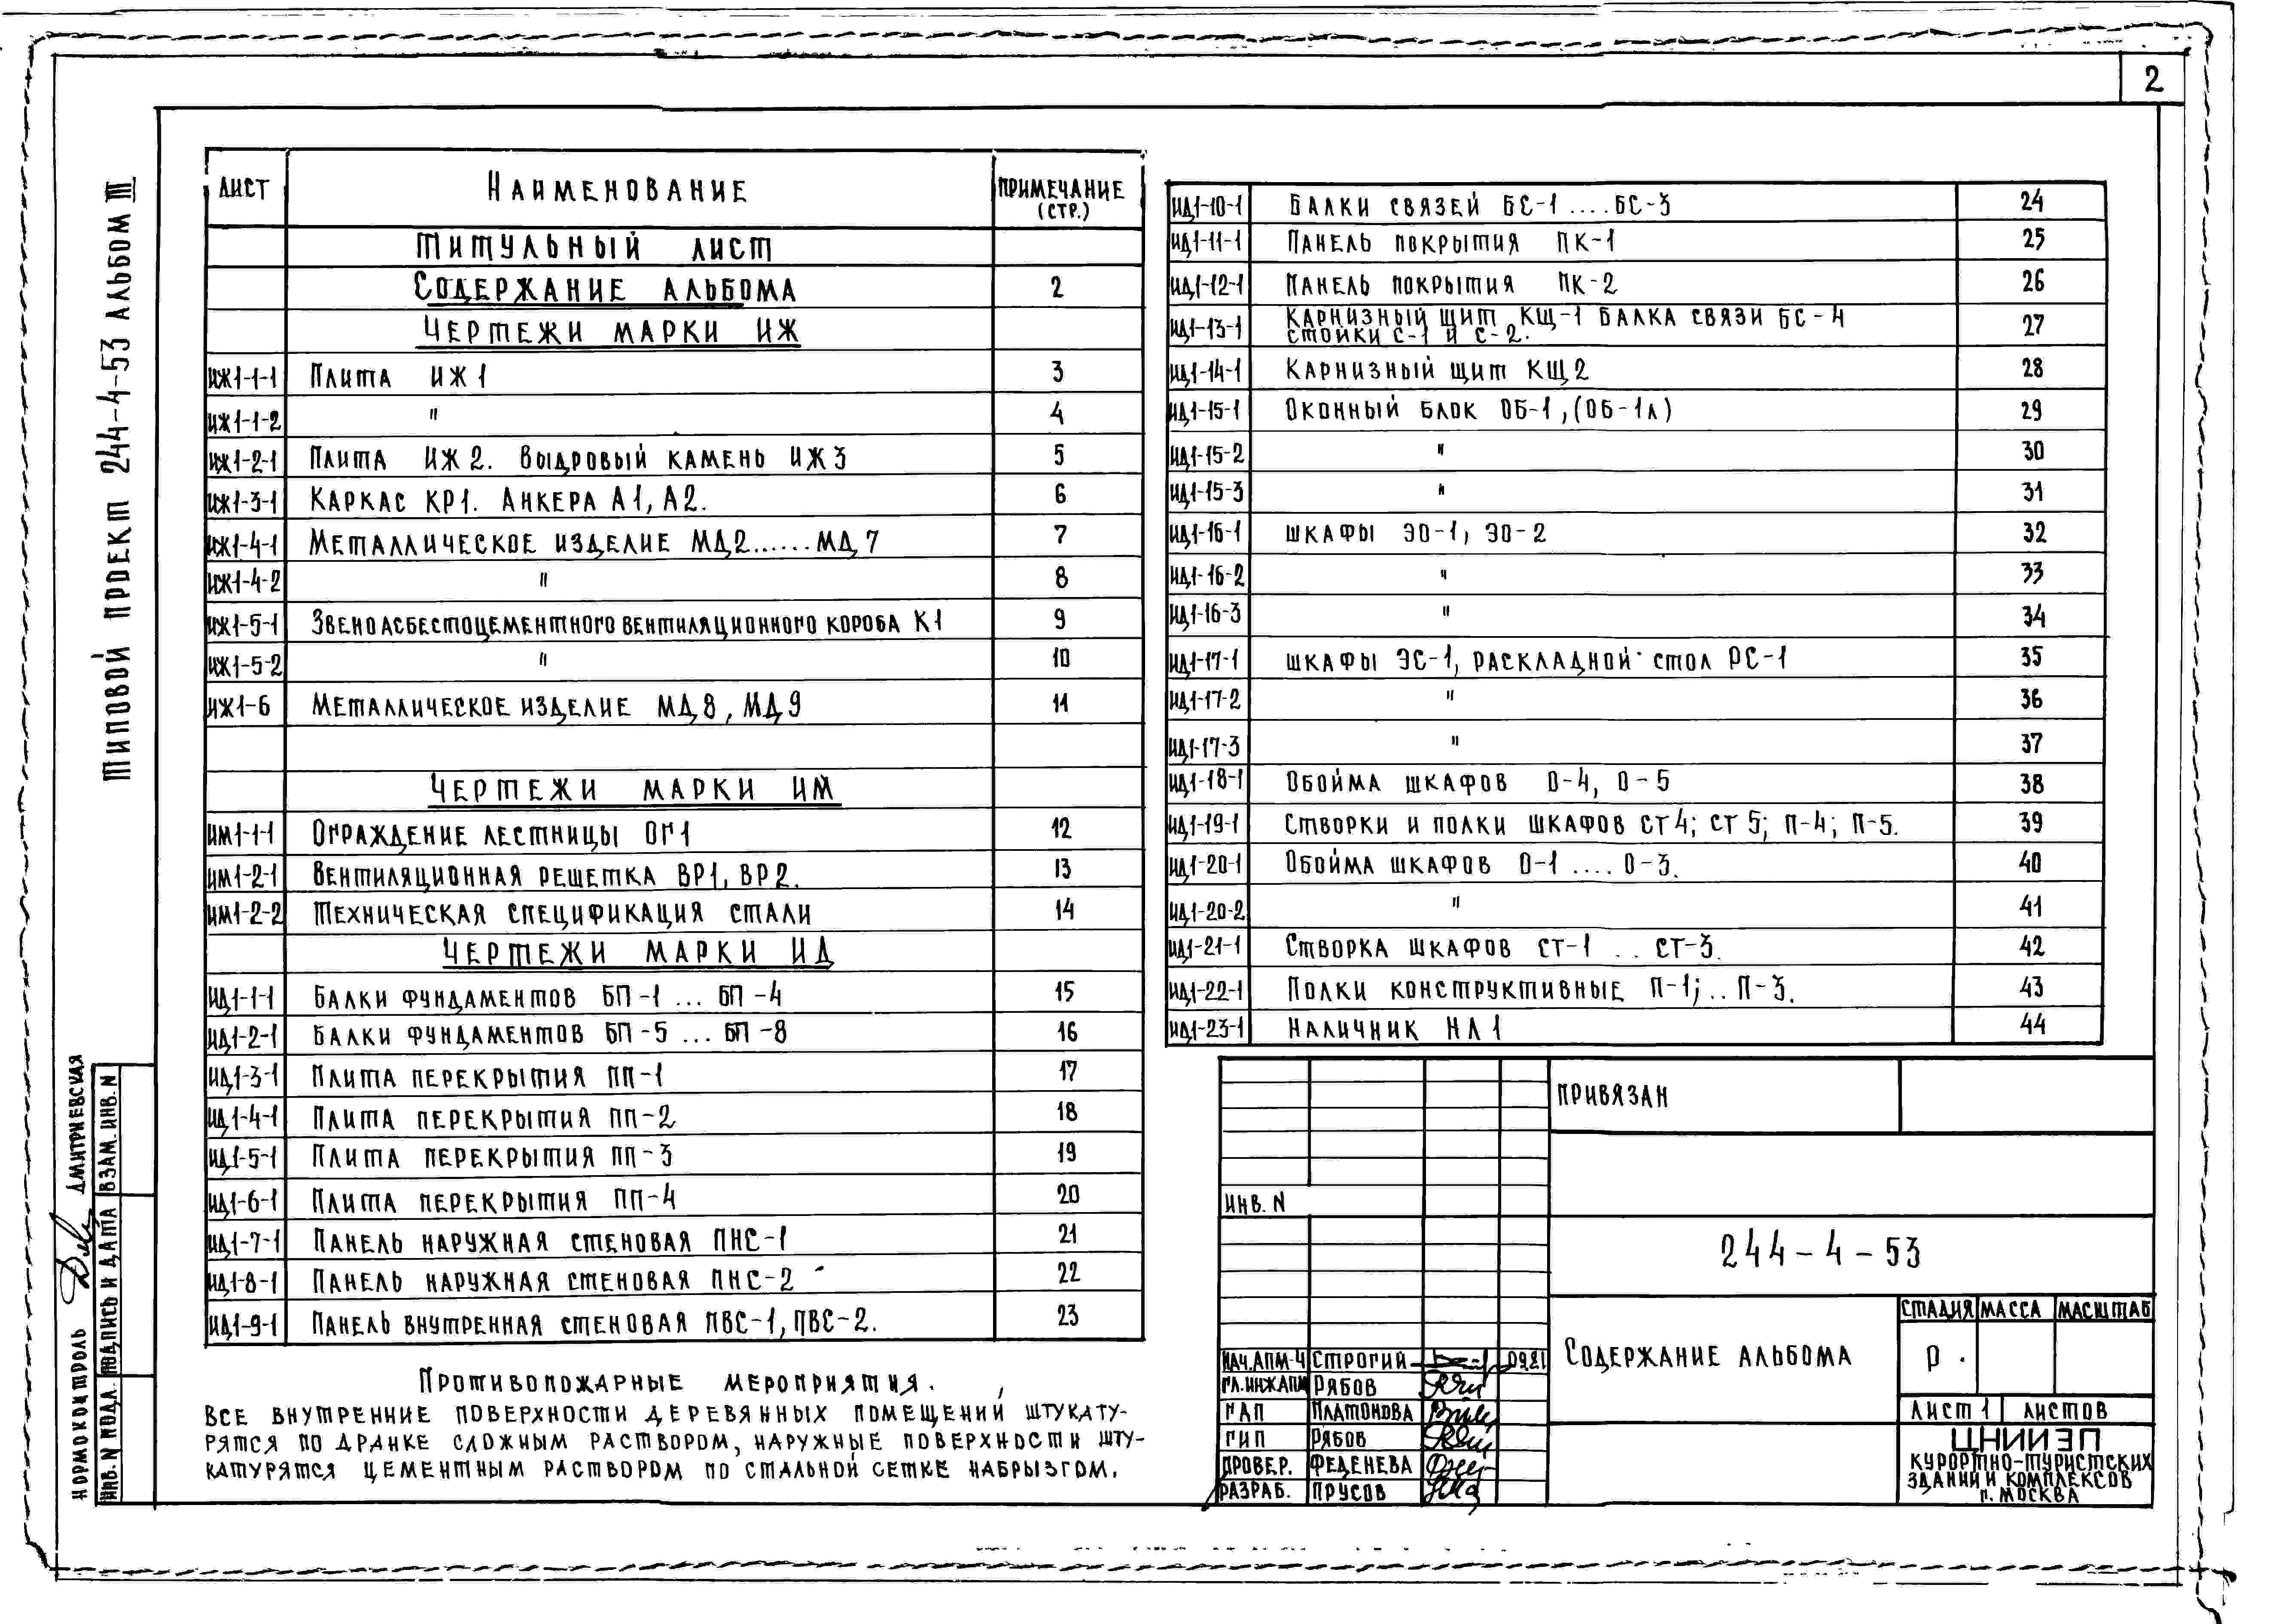 2
ТИПОВОЙ ПРОЕКТ 244-4-53 АЛЬБОМ III
ЛИСТ НАИМЕНОВАНИЕ ПРИМЕЧАНИЕ (СТР.)
ТИТУЛЬНЫЙ ЛИСТ
СОДЕРЖАНИЕ АЛЬБОМА 2
ЧЕРТЕЖИ МАРКИ ИЖ
ИЖ1-1-1 ПЛИТА ИЖ1 3
ИЖ1-1-2 " 4
ИЖ1-2-1 ПЛИТА ИЖ2. ВЫДРОВЫЙ КАМЕНЬ ИЖ3 5
ИЖ1-3-1 КАРКАС КР1. АНКЕРА А1, А2. 6
ИЖ1-4-1 МЕТАЛЛИЧЕСКОЕ ИЗДЕЛИЕ МД2......МД7 7
ИЖ1-4-2 " 8
ИЖ1-5-1 ЗВЕНО АСБЕСТОЦЕМЕНТНОГО ВЕНТИЛЯЦИОННОГО КОРОБА К1 9
ИЖ1-5-2 " 10
ИЖ1-6 МЕТАЛЛИЧЕСКОЕ ИЗДЕЛИЕ МД8, МД9 11
ЧЕРТЕЖИ МАРКИ ИМ
ИМ1-1-1 ОГРАЖДЕНИЕ ЛЕСТНИЦЫ ОГ1 12
ИМ1-2-1 ВЕНТИЛЯЦИОННАЯ РЕШЕТКА ВР1, ВР2. 13
ИМ1-2-2 ТЕХНИЧЕСКАЯ СПЕЦИФИКАЦИЯ СТАЛИ 14
ЧЕРТЕЖИ МАРКИ ИД
ИД1-1-1 БАЛКИ ФУНДАМЕНТОВ БП-1 ... БП-4 15
ИД1-2-1 БАЛКИ ФУНДАМЕНТОВ БП-5 ... БП-8 16
ИД1-3-1 ПЛИТА ПЕРЕКРЫТИЯ ПП-1 17
ИД1-4-1 ПЛИТА ПЕРЕКРЫТИЯ ПП-2 18
ИД1-5-1 ПЛИТА ПЕРЕКРЫТИЯ ПП-3 19
ИД1-6-1 ПЛИТА ПЕРЕКРЫТИЯ ПП-4 20
ИД1-7-1 ПАНЕЛЬ НАРУЖНАЯ СТЕНОВАЯ ПНС-1 21
ИД1-8-1 ПАНЕЛЬ НАРУЖНАЯ СТЕНОВАЯ ПНС-2 22
ИД1-9-1 ПАНЕЛЬ ВНУТРЕННАЯ СТЕНОВАЯ ПВС-1, ПВС-2. 23
ПРОТИВОПОЖАРНЫЕ МЕРОПРИЯТИЯ.
ВСЕ ВНУТРЕННИЕ ПОВЕРХНОСТИ ДЕРЕВЯННЫХ ПОМЕЩЕНИЙ ШТУКАТУ-
РЯТСЯ ПО ДРАНКЕ СЛОЖНЫМ РАСТВОРОМ, НАРУЖНЫЕ ПОВЕРХНОСТИ ШТУ-
КАТУРЯТСЯ ЦЕМЕНТНЫМ РАСТВОРОМ ПО СТАЛЬНОЙ СЕТКЕ НАБРЫЗГОМ.
ИД1-10-1 БАЛКИ СВЯЗЕЙ БС-1 ....БС-3 24
ИД1-11-1 ПАНЕЛЬ ПОКРЫТИЯ ПК-1 25
ИД1-12-1 ПАНЕЛЬ ПОКРЫТИЯ ПК-2 26
ИД1-13-1 КАРНИЗНЫЙ ЩИТ КЩ-1 БАЛКА СВЯЗИ БС-4
СТОЙКИ С-1 И С-2. 27
ИД1-14-1 КАРНИЗНЫЙ ЩИТ КЩ2 28
ИД1-15-1 ОКОННЫЙ БЛОК ОБ-1, (ОБ-1Л) 29
ИД1-15-2 " 30
ИД1-15-3 " 31
ИД1-16-1 ШКАФЫ ЭО-1, ЭО-2 32
ИД1-16-2 " 33
ИД1-16-3 " 34
ИД1-17-1 ШКАФЫ ЭС-1, РАСКЛАДНОЙ СТОЛ РС-1 35
ИД1-17-2 " 36
ИД1-17-3 " 37
ИД1-18-1 ОБОЙМА ШКАФОВ О-4, О-5 38
ИД1-19-1 СТВОРКИ И ПОЛКИ ШКАФОВ СТ4; СТ5; П-4; П-5. 39
ИД1-20-1 ОБОЙМА ШКАФОВ О-1 .... О-3. 40
ИД1-20-2 " 41
ИД1-21-1 СТВОРКА ШКАФОВ СТ-1 .. СТ-3. 42
ИД1-22-1 ПОЛКИ КОНСТРУКТИВНЫЕ П-1;.. П-3. 43
ИД1-23-1 НАЛИЧНИК НЛ1 44
ПРИВЯЗАН
ИНВ. N
244-4-53
СОДЕРЖАНИЕ АЛЬБОМА
СТАДИЯ МАССА МАСШТАБ
Р.
ЛИСТ 1 ЛИСТОВ
ЦНИИЭП
КУРОРТНО-ТУРИСТСКИХ
ЗДАНИЙ И КОМПЛЕКСОВ
Г. МОСКВА
НАЧ.АПМ-4 СТРОГИЙ 09.81
ГЛ.ИНЖ.АПМ РЯБОВ
ГАП ПЛАТОНОВА
ГИП РЯБОВ
ПРОВЕР. ФЕДЕНЕВА
РАЗРАБ. ПРУСОВ
НОРМОКОНТРОЛЬ ДМИТРИЕВСКАЯ
ИНВ. N ПОДЛ. ПОДПИСЬ И ДАТА ВЗАМ. ИНВ. N